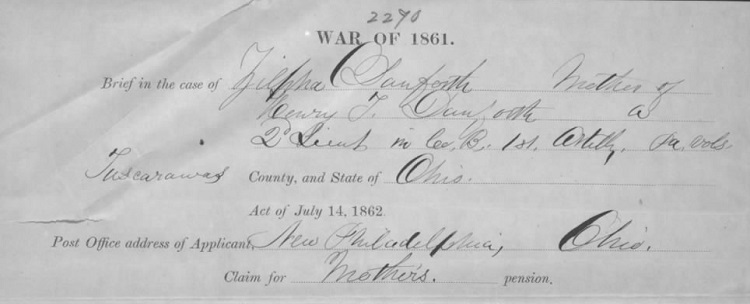 2290
WAR OF 1861.
Brief in the case of Zilpha Danforth Mother of
Henry T. Danforth a
2d Lieut in Co. B. 1st. Artilly, Pa. vols.
Tuscarawas County, and State of Ohio.
Act of July 14, 1862.
Post Office address of Applicant, New Philadelphia, Ohio.
Claim for Mother's. pension.